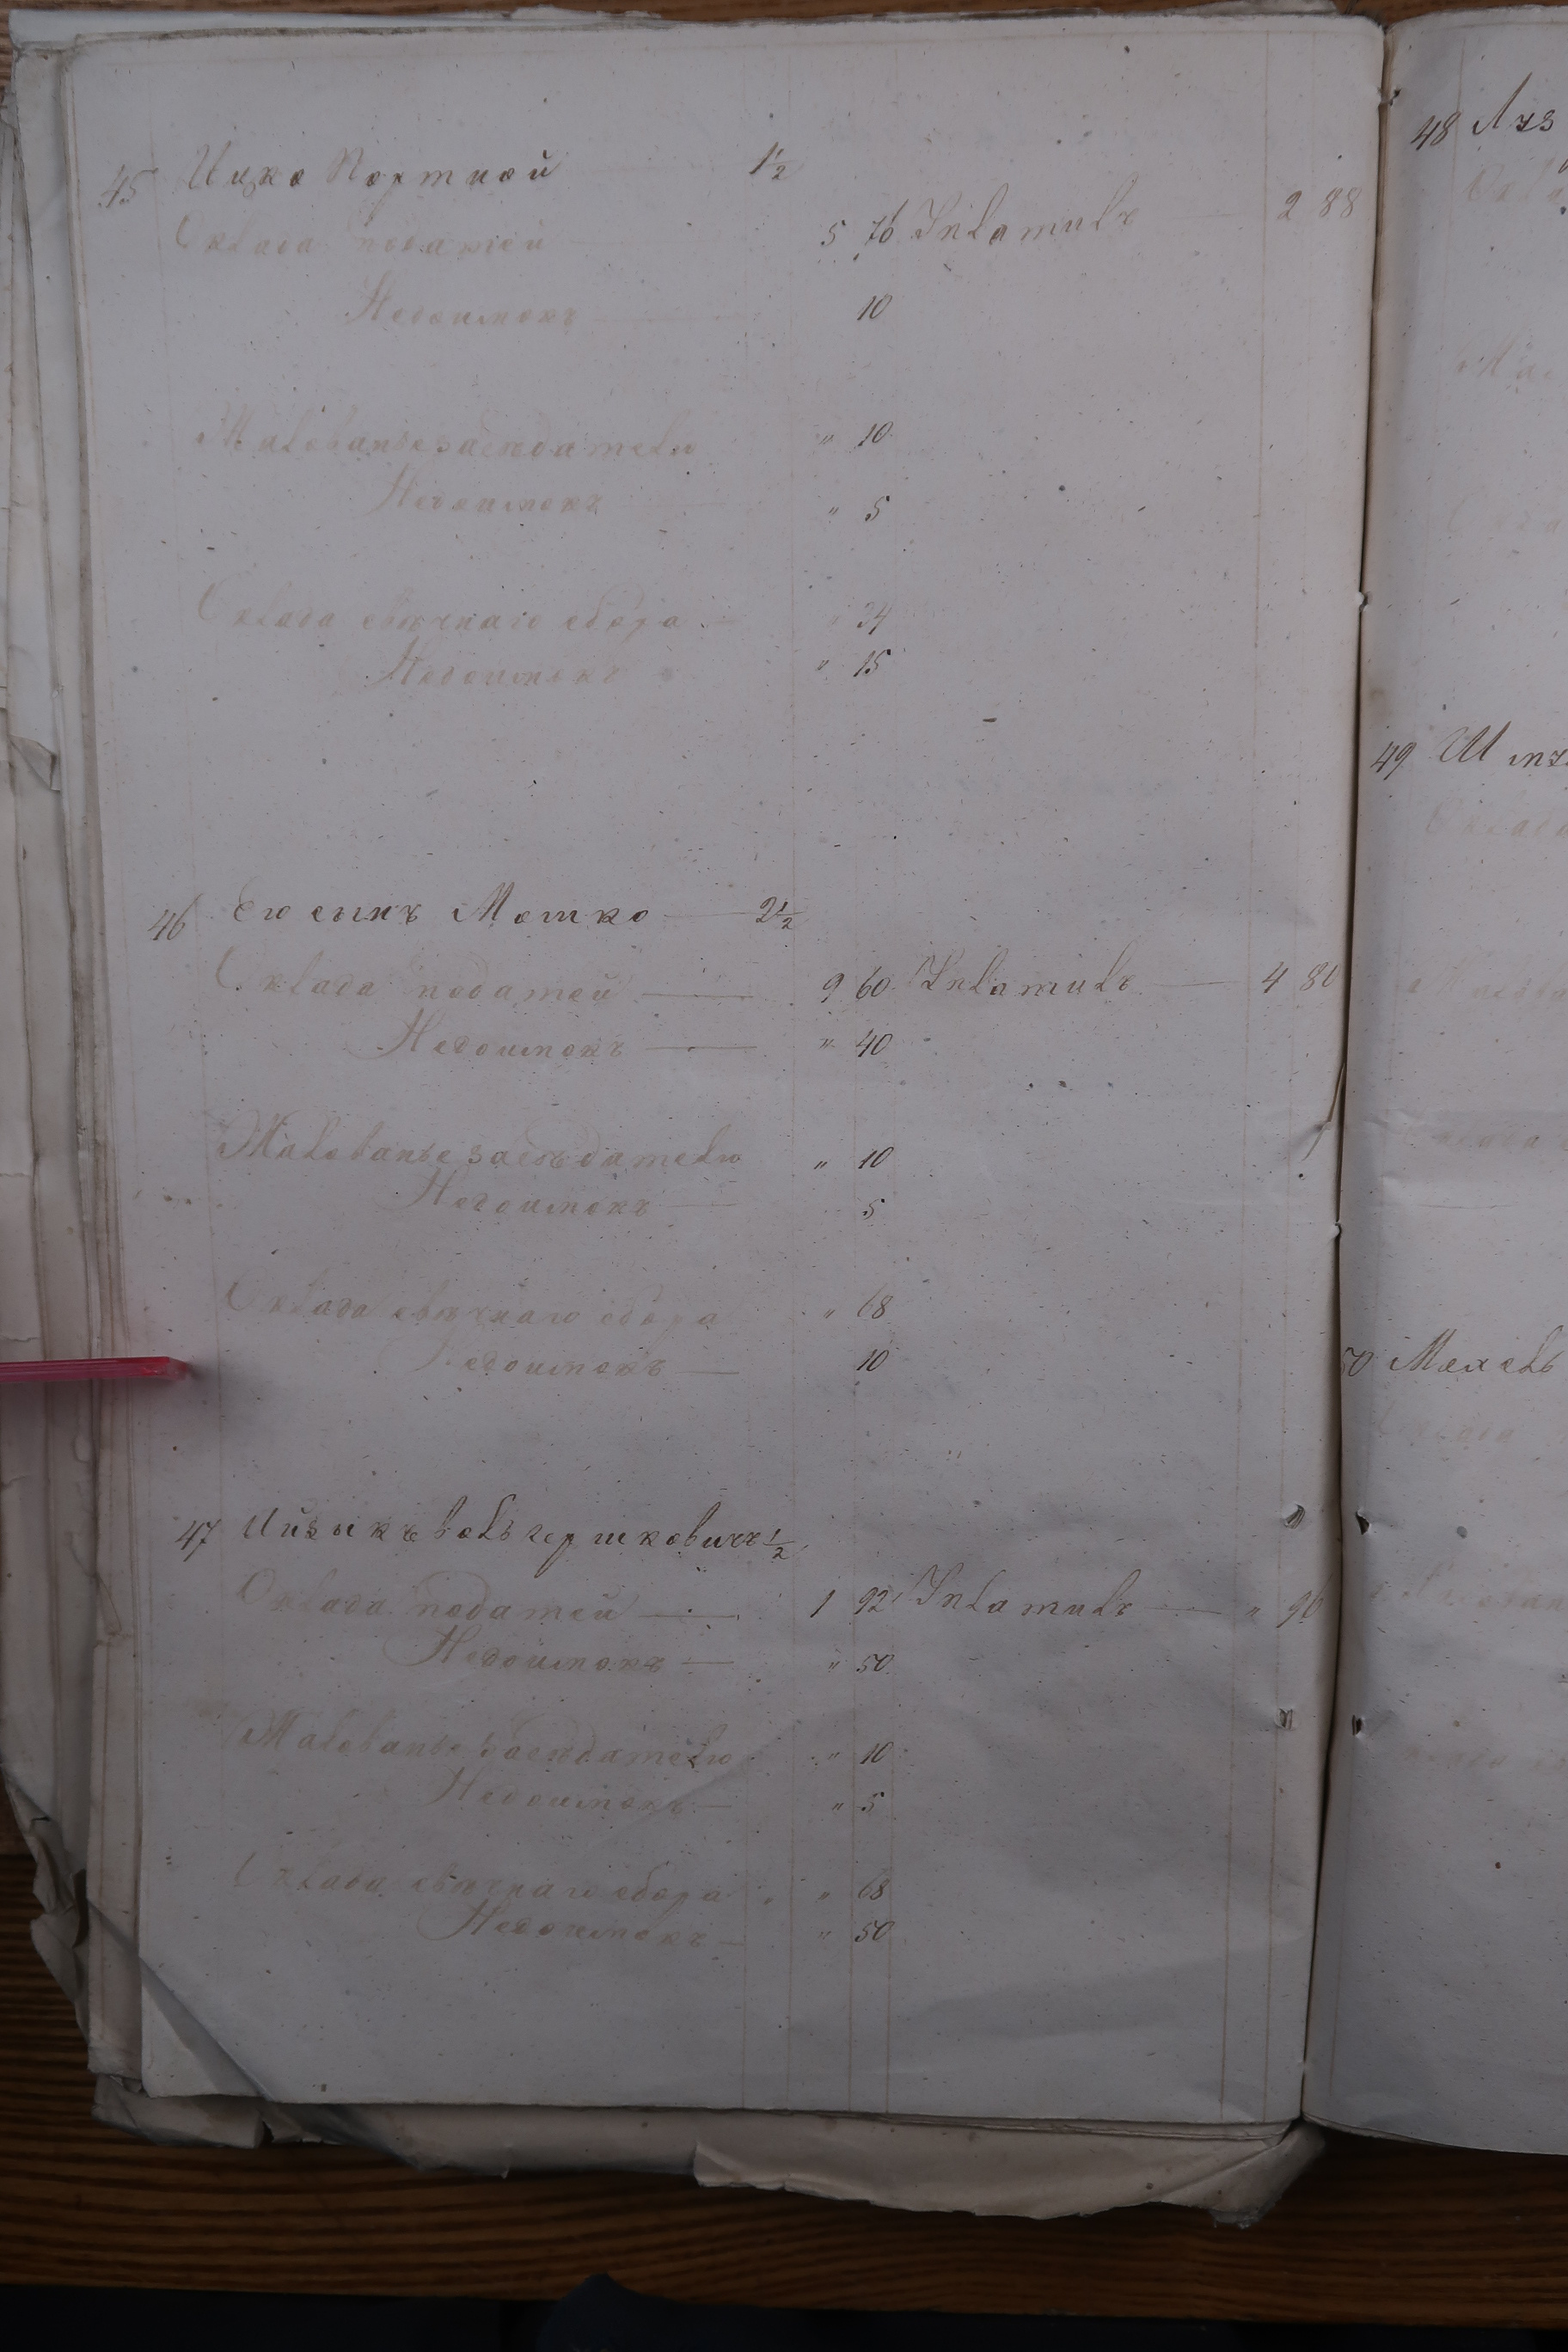 45 Ицко Портной 1 1/2
Оклада податей 5 76 Уплатилъ 2 88
Недоимокъ 10
Жалованье засѣдателю " 10
Недоимокъ " 5
Оклада свѣчнаго сбора " 34
Недоимокъ " 15
46 Его сынъ Мошко 2 1/2
Оклада податей 9 60 Уплатилъ 4 80
Недоимокъ " 40
Жалованье засѣдателю " 10
Недоимокъ 5
Оклада свѣчнаго сбора " 68
Недоимокъ 10
47 Айзикъ Вольгершковичъ 1/2
Оклада податей 1 92 Уплатилъ " 96
Недоимокъ " 50
Жалованье засѣдателю " 10
Недоимокъ " 5
Оклада свѣчнаго сбора " 68
Недоимокъ " 50
48
49
50